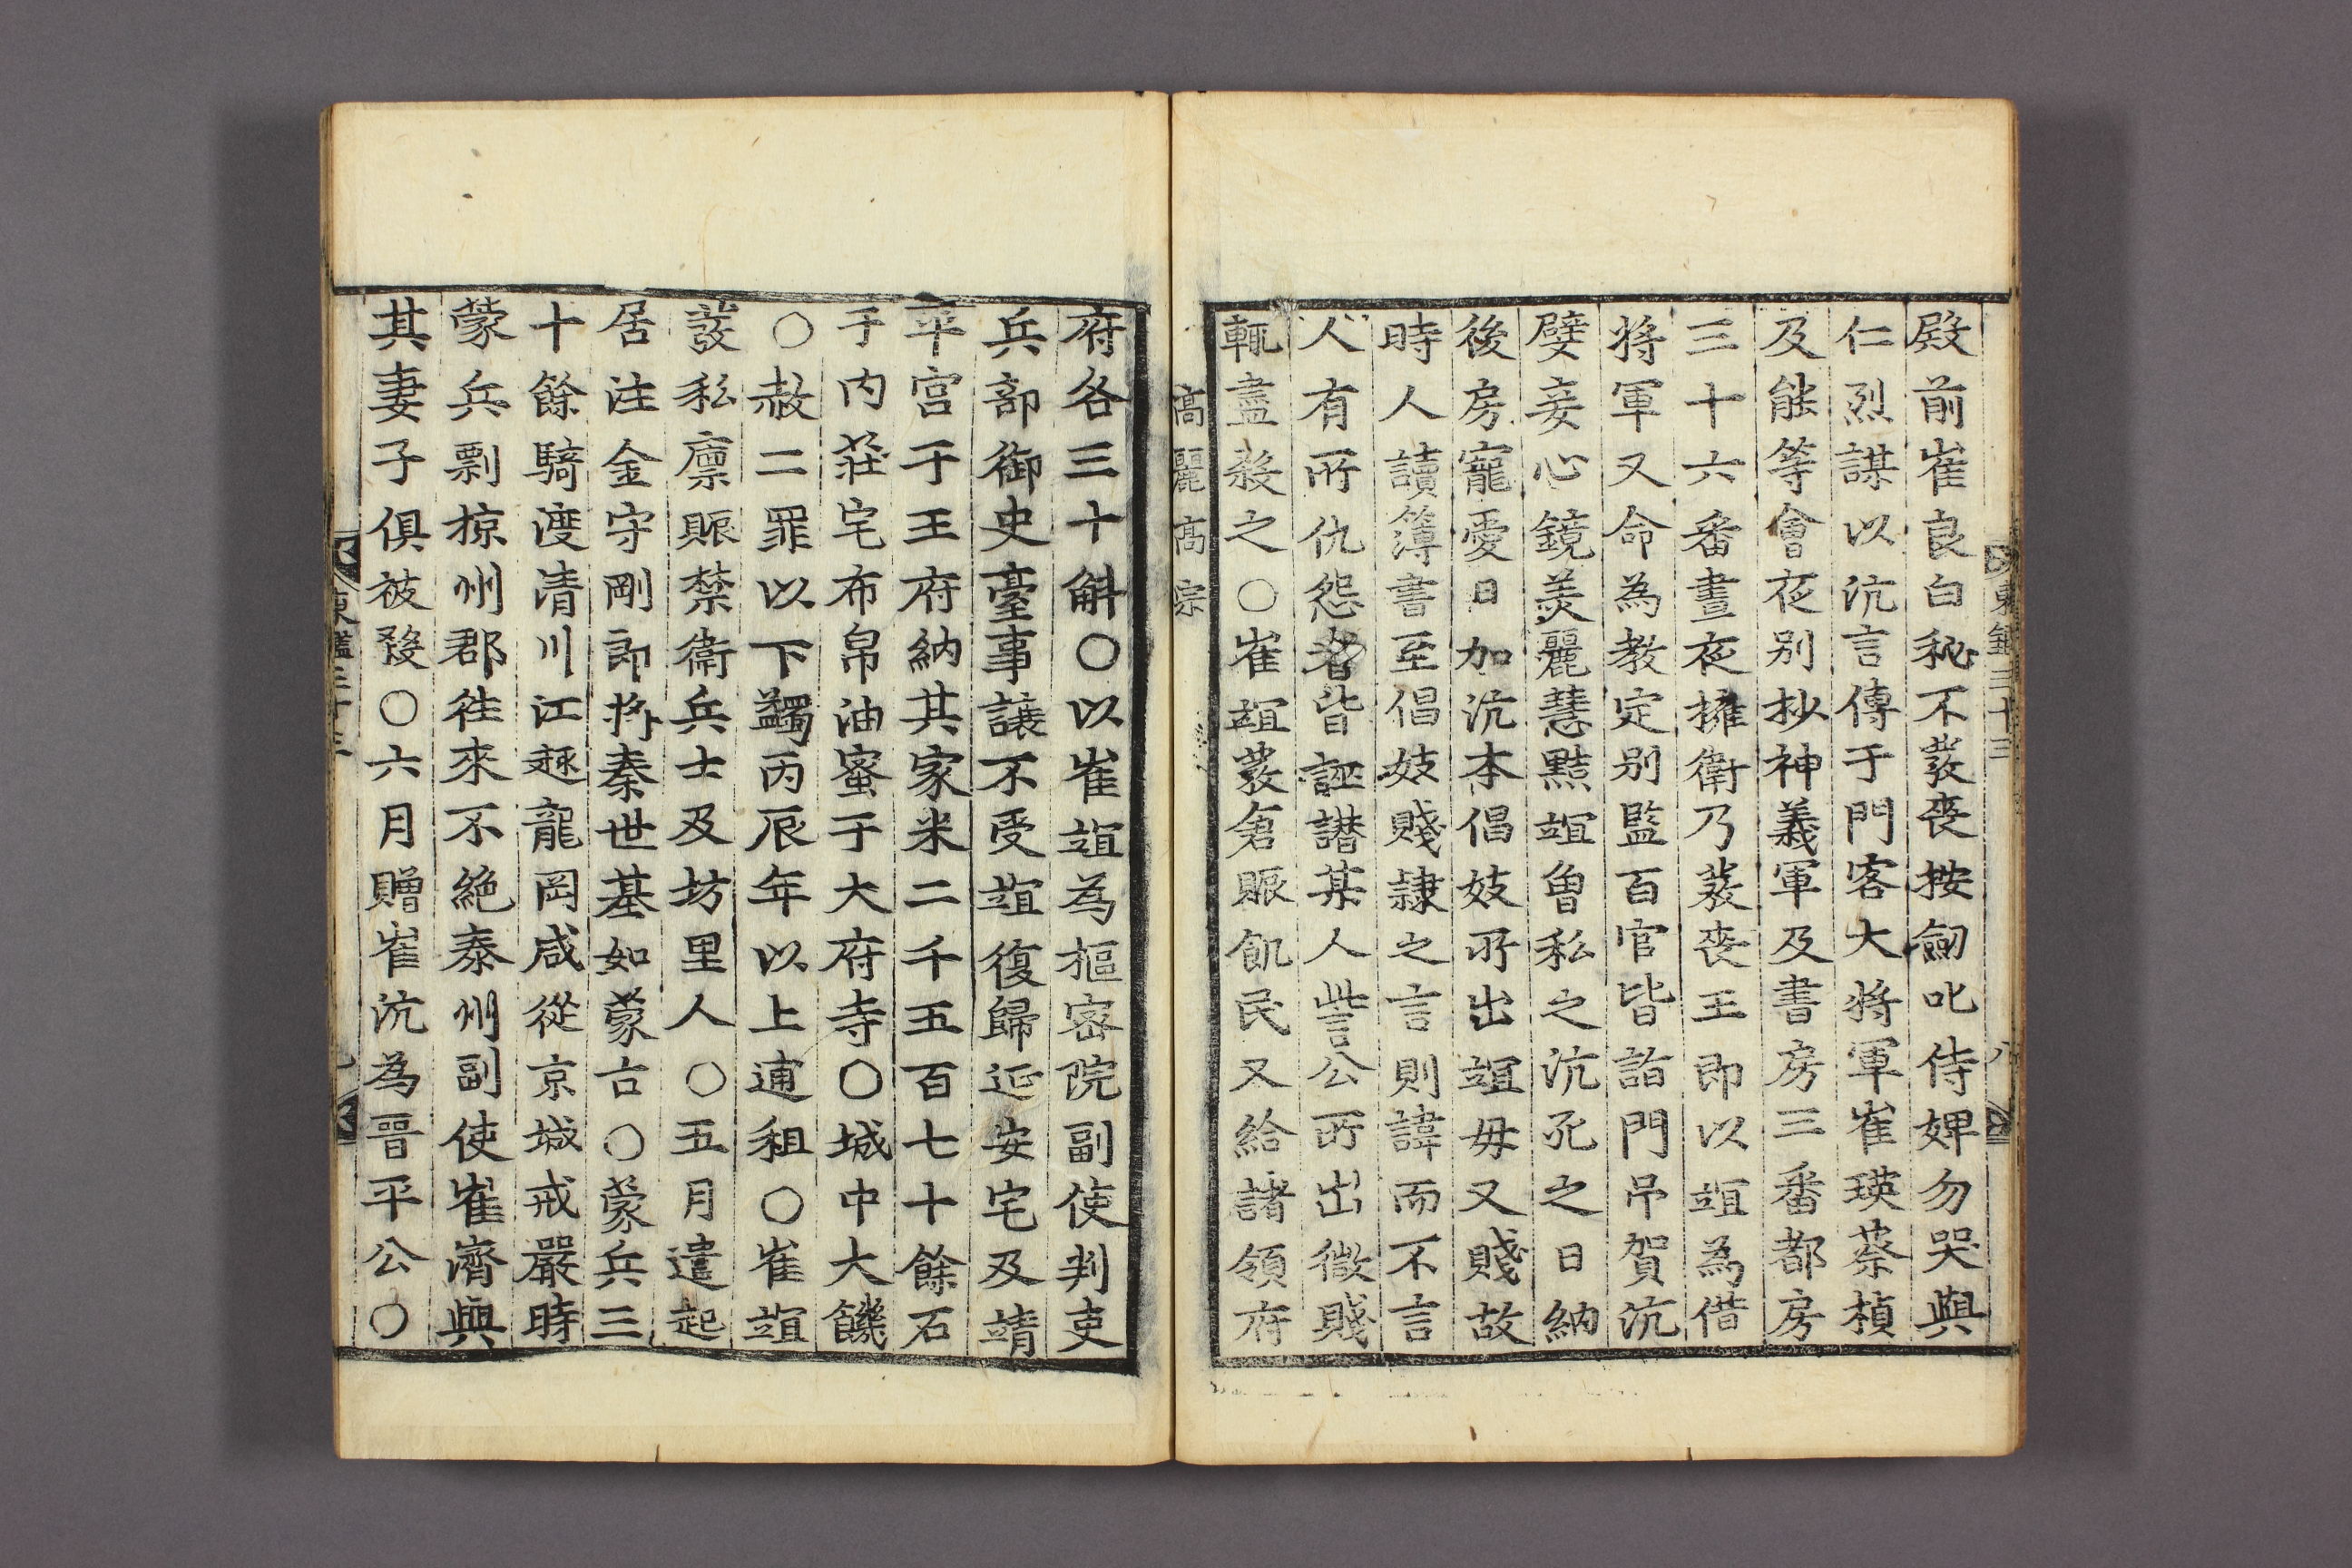 殿前崔良白秘不發喪按劒叱侍婢勿哭與
仁烈謀以沆言傳于門客大將軍崔瑛蔡楨
及能等會夜别抄神義軍及書房三番都房
三十六番晝夜擁衛乃發喪王即以竩為借
將軍又命為教定别監百官皆詣門吊賀沆
嬖妾心鏡美麗慧黠竩曾私之沆死之日納
後房寵愛日加沆本倡妓所出竩毋又賤故
時人讀簿書至倡妓賤隷之言則諱而不言
人有所仇怨者皆誣譖某人訾公所出微賤
輒盡殺之○崔竩發倉賑飢民又給諸領府
高麗高宗
東鑑三十三
八
府各三十斛○以崔竩為樞密院副使判吏
兵部御史臺事讓不受竩復歸延安宅及靖
平宮于王府納其家米二千五百七十餘石
于内莊宅布帛油蜜于大府寺○城中大饑
○赦二罪以下蠲丙辰年以上逋租○崔竩
發私廪賑禁衛兵士及坊里人○五月遣起
居注金守剛郎將秦世基如蒙古○蒙兵三
十餘騎渡清川江趣龍岡咸從京城戒嚴時
蒙兵剽掠州郡往來不絶泰州副使崔濟與
其妻子俱被殺○六月贈崔沆為晋平公○
東鑑三十三